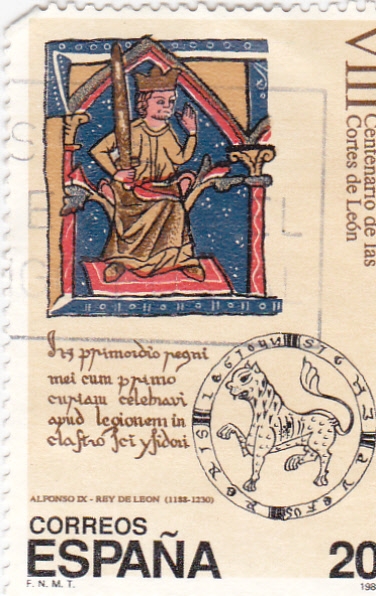 VIII
Centenario de las
Cortes de León
In primordio regni
mei cum primo
curiam celebravi
apud legionem in
claſtro sci ysidori
ALFONSO IX - REY DE LEON (1188-1230)
CORREOS
ESPAÑA
20
F. N. M. T.
198